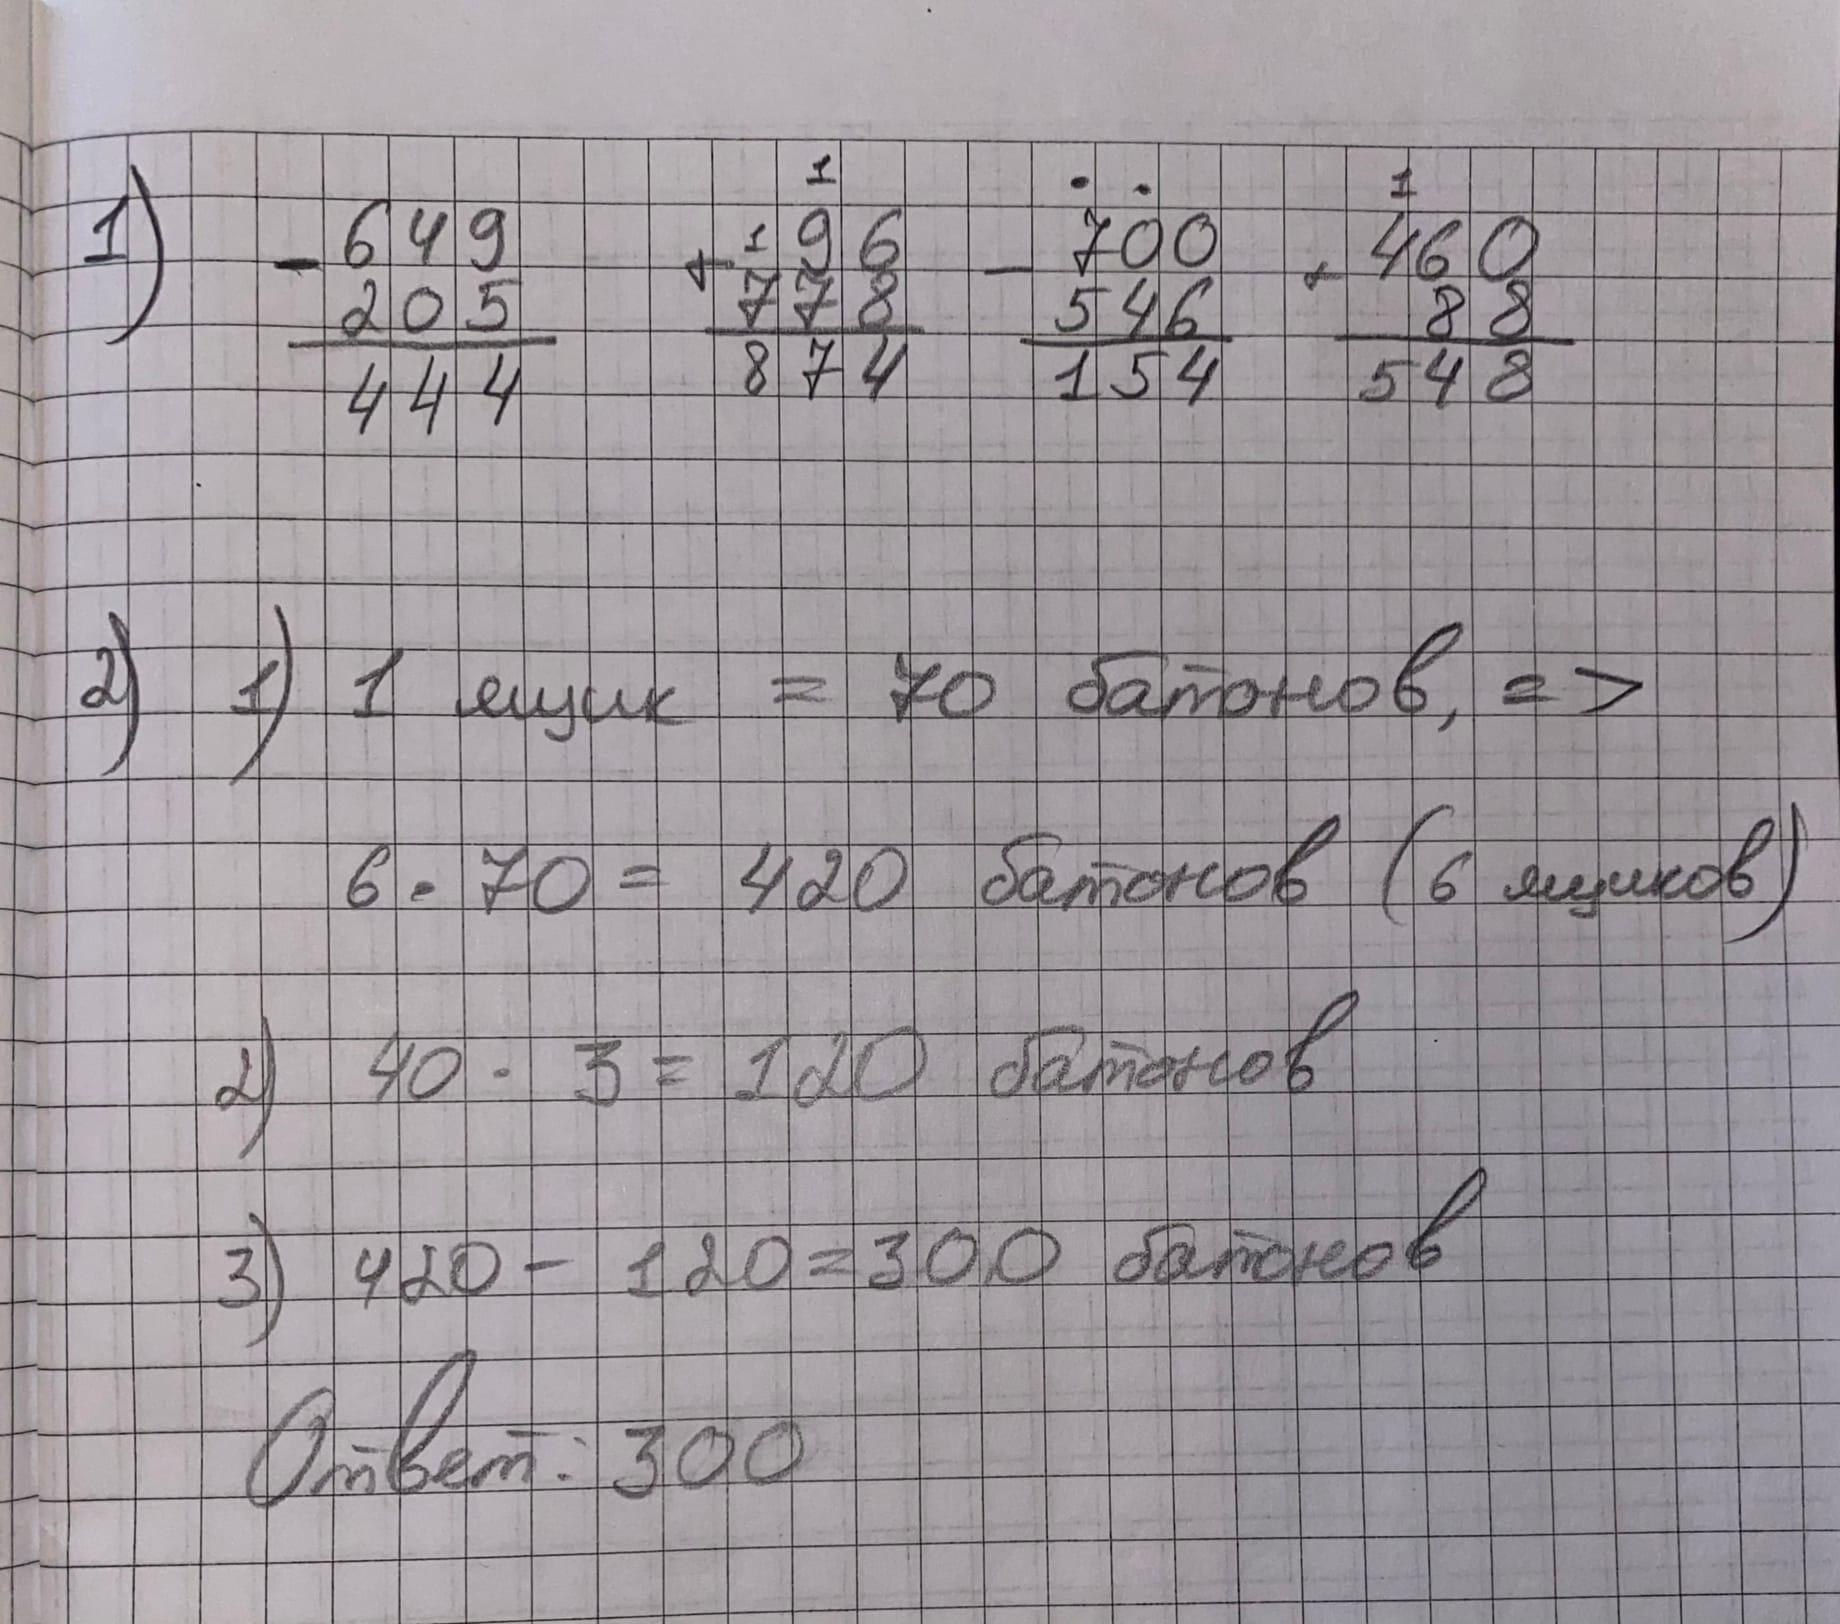 1) - 649 + 196 - 700 + 460
205 778 546 88
444 874 154 548
2) 1) 1 ящик = 70 батонов, =>
6 · 70 = 420 батонов (6 ящиков)
2) 40 · 3 = 120 батонов
3) 420 - 120 = 300 батонов
Ответ: 300